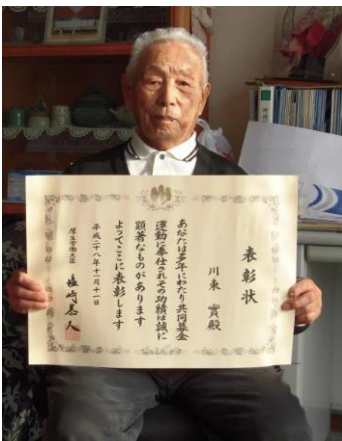 表彰状
川東 實殿
あなたは多年にわたり共同募金
運動に奉仕されその功績は誠に
顕著なものがあります
よってここに表彰します
平成二十八年十一月十一日
厚生労働大臣
塩崎恭久